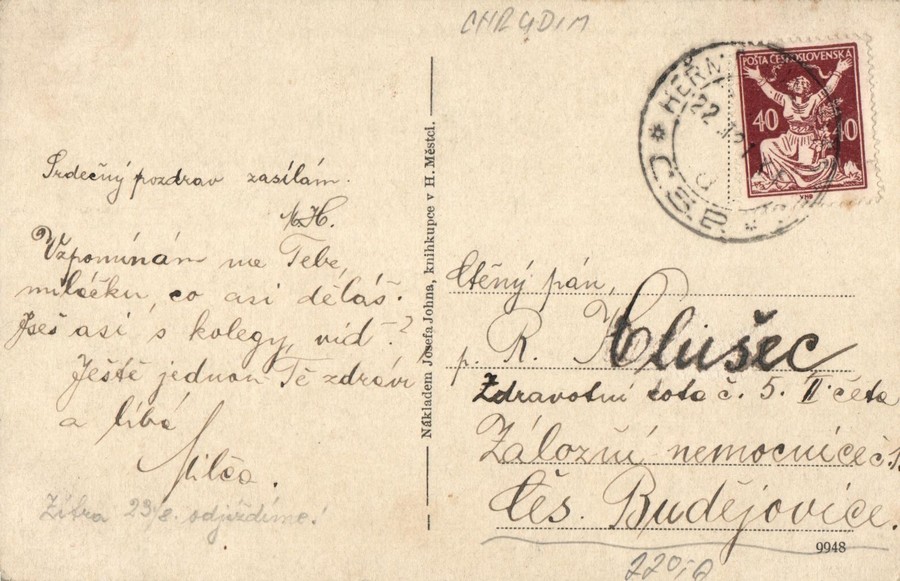 CHRUDIM
POŠTA ČESKOSLOVENSKA
40 40
Srdečný pozdrav zasílám.
Vzpomínám na Tebe,
miláčku, co asi děláš.
Jseš asi s kolegy, viď?
Ještě jednou Tě zdraví
a líbá
Milča.
Zítra 23/8. odjíždíme!
Nákladem Josefa Johna, knihkupce v H. Městci.
Ctěný pán,
p. R. Hlušec
Zdravotní rota č. 5. II četa
Záložní nemocnice č.
Čes. Budějovice.
9948